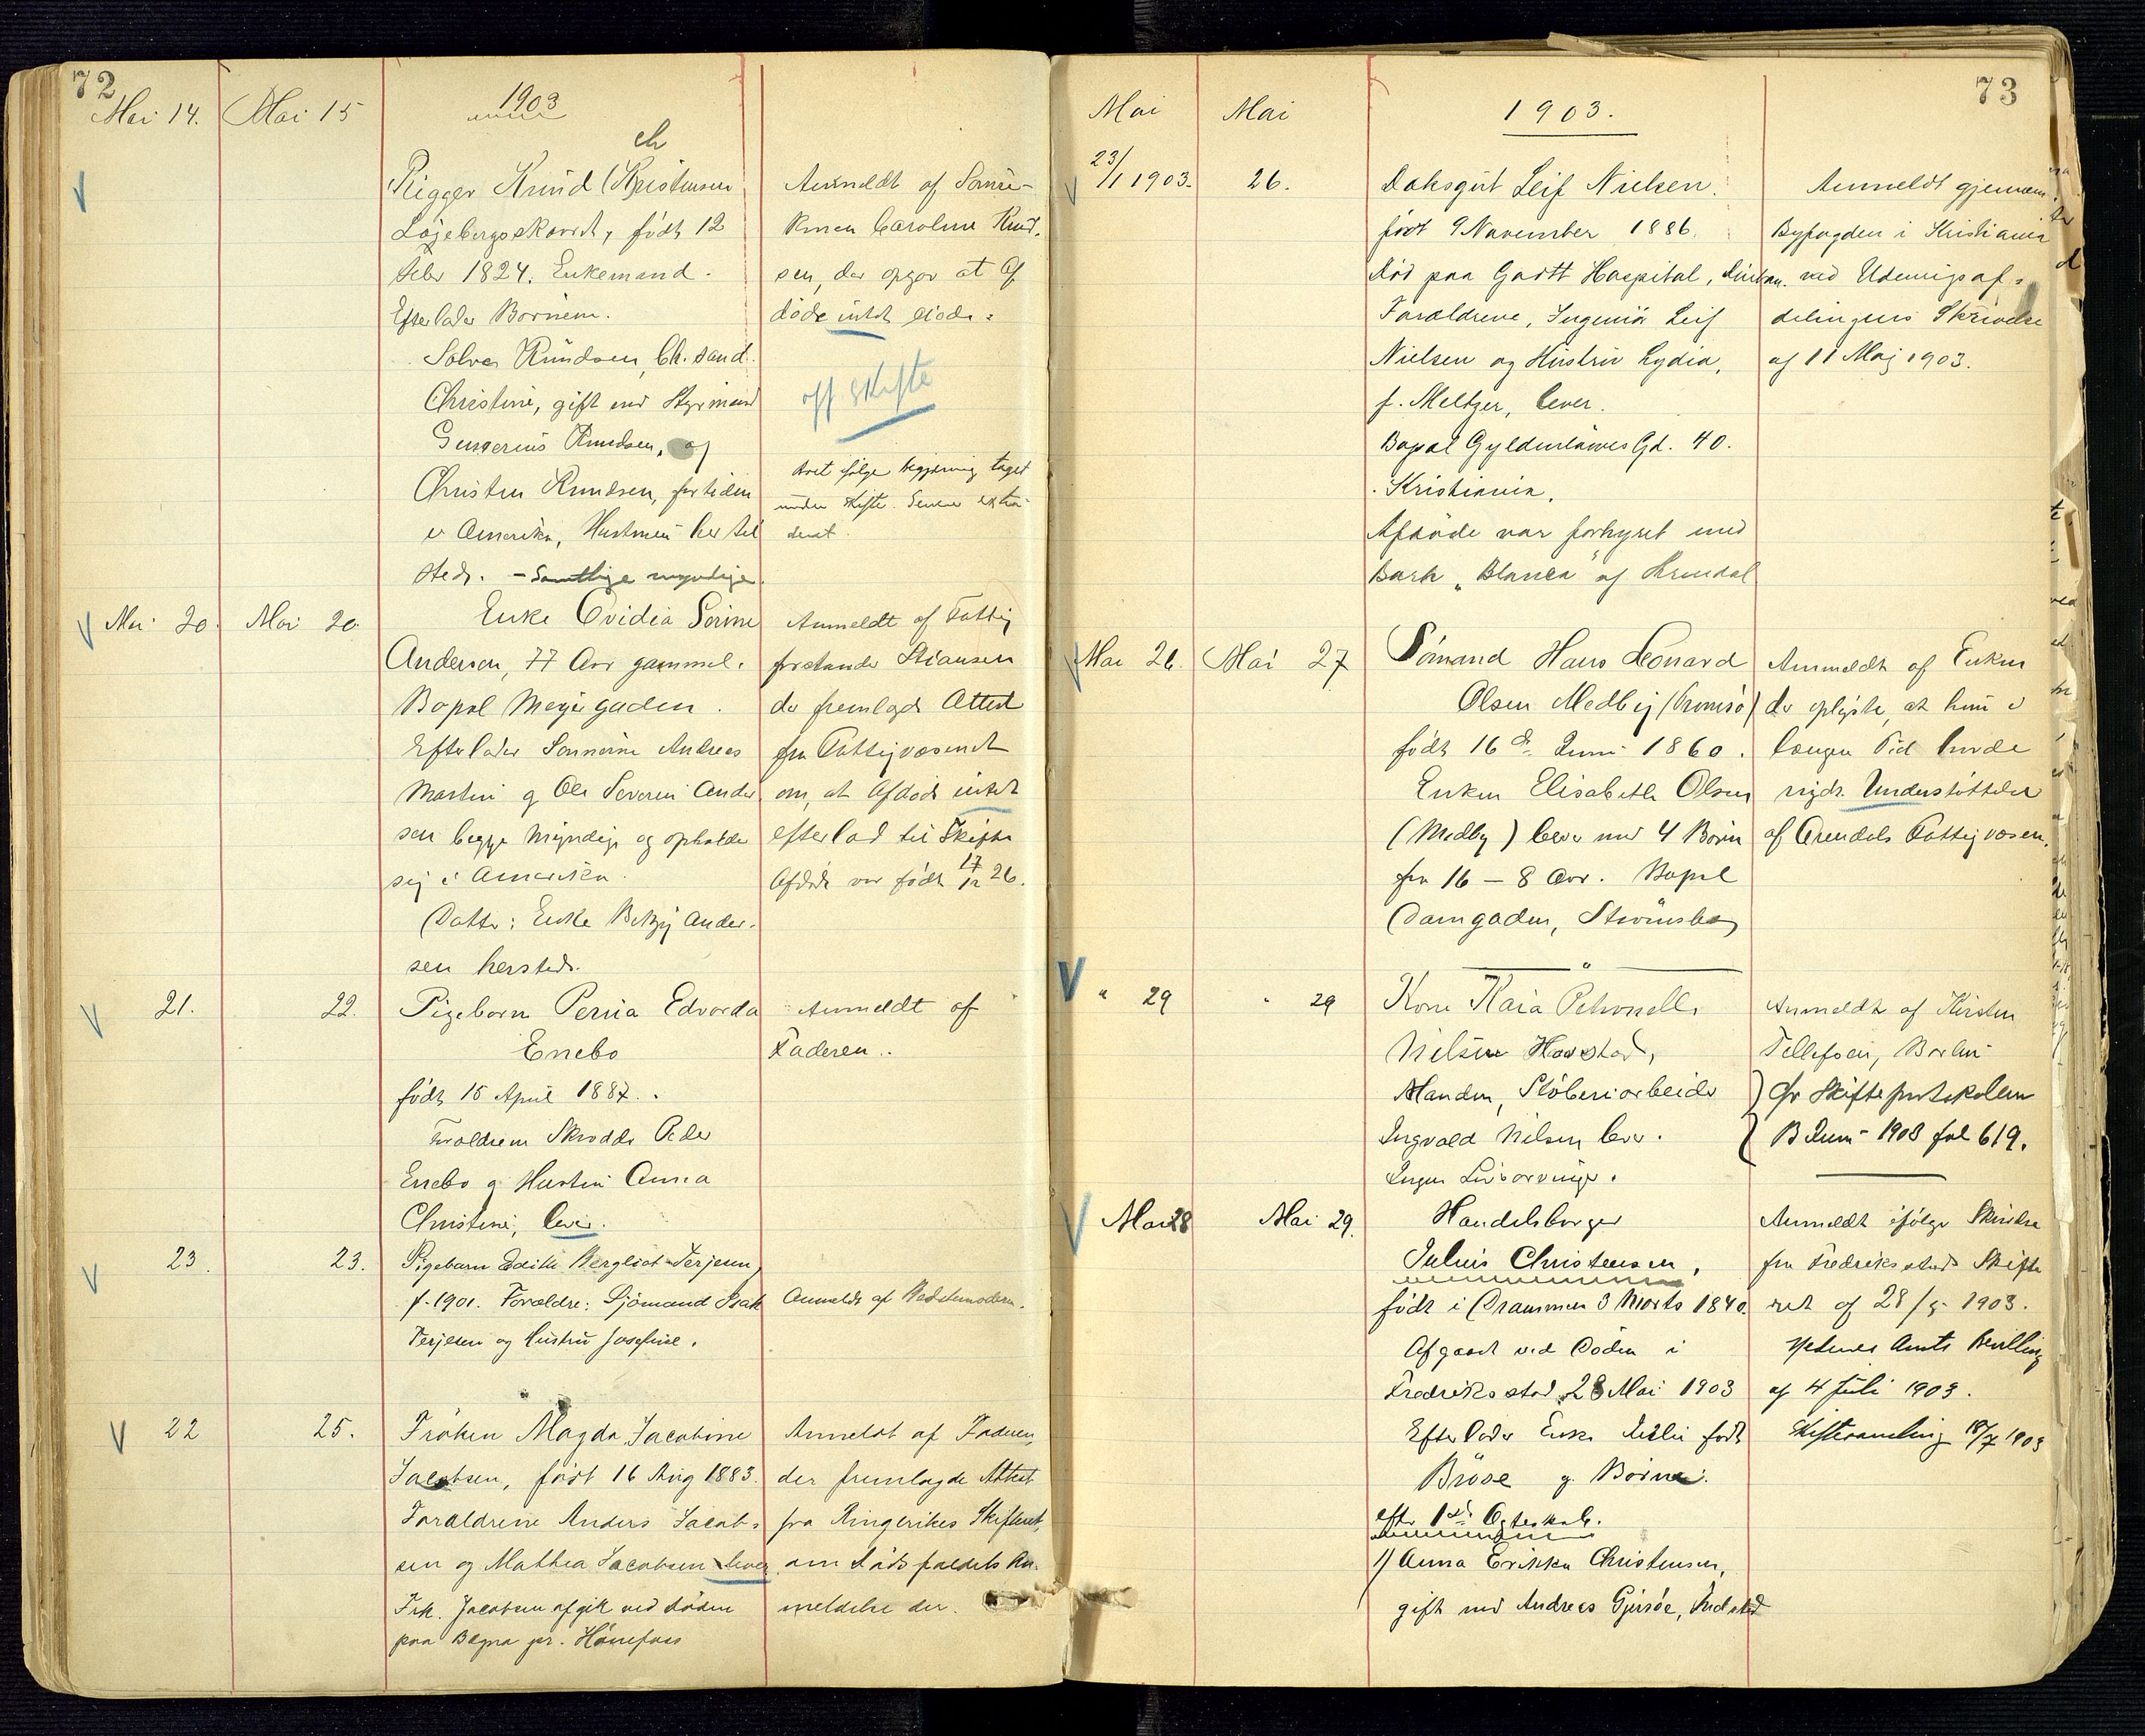 72
Mai 14. Mai 15 1903
ch
Rigger Knud (Kristensen
Löjebergsskaret, født 12
Febr 1824. Enkemand.
Efterlader Børnene.
Solve Knudsen, Ch. sand.
Christine, gift med Styrmand
Knudsen, og
Christen Knudsen, for tiden
i Amerika, Hustruen her til
steds. – Samtlige myndige.
Anmeldt af Sønne-
konen Caroline Knud-
sen, der opgav at Af
døde intet eiede.
off skifte
ifølge begjæring taget
under skifte. Senere extra-
deret
Mai 20. Mai 20.
Enke Ovidia Sørine
Andersen, 77 Aar gammel.
Bopæl Meyergaden.
Efterlader Sønnerne Andreas
Martin og Ole Severin Ander
sen begge myndige og opholder
sig i Amerika.
Datter: Enke Betzy Ander-
sen hersteds.
Anmeldt af Fattig
forstander Stiansen
der fremlagde Attest
fra Fattigvæsenet
om, at Afdøde intet
efterlod til Skifte
Afdøde var født 17/12 26.
21. 22.
Pigebarn Perna Edvarda
Enebo
født 15 April 1887.
Forældrene Skrædder Peder
Enebo og Hustru Anna
Christine, lever.
Anmeldt af
Faderen.
23. 23.
Pigebarn Edith Bergliot Terjesen,
f. 1901. Forældre: Sjömand Isak
Terjesen og Hustru Josefine.
Anmeldt af Bedstemoderen.
22 25.
Frøken Magda Jacobine
Jacobsen, født 16 Aug 1883.
Forældrene Anders Jacob-
sen og Mathea Jacobsen lever
Frk. Jacobsen afgik ved døden
paa Begna pr. Hönefoss
Anmeldt af Faderen,
der fremlagde Attest
fra Ringerikes Skifteret,
om Dødsfaldets An-
meldelse der.
73
Mai Mai 1903.
23/1 1903. 26.
Daksgut Leif Nielsen.
født 9 November 1886.
Død paa Hospital, Durban.
Forældrene, Ingeniør Leif
Nielsen og Hustru Lydia,
f. Meltzer, lever.
Bopæl Gyldenløwes Gd. 40.
Kristiania.
Afdøde var forhyret med
Bark "Blanca" af Arendal
Anmeldt gjennem
Byfogden i Kristiania
ved Udenrigsaf-
delingens Skrivelse
af 11 Maj 1903.
Mai 26. Mai 27
Sömand Hans Leonard
Olsen Medby (Tromsø)
født 16de Juni 1860.
Enken Elisabeth Olsen
(Medby) lever med 4 Børn
fra 16 – 8 Aar. Bopæl
Damgaden, Strømsbo
Anmeldt af Enken
der oplyste, at hun i
længere Tid havde
nydt Understøttelse
af Arendals Fattigvæsen.
" 29 " 29
Kone Kaia Petronelle
Nilsen Havstad,
Manden, Støberiarbeider
Ingvald Nilsen lever.
Ingen Livsarvinger.
Anmeldt af Kirsten
Tellefsen,
Cfr Skifteprotokollen
B Juni 1903 fol 619.
Mai 28 Mai 29.
Handelsborger
Julius Christensen,
født i Drammen 3 Marts 1840.
Afgaaet ved Døden i
Fredriksstad 28 Mai 1903
Efterlader Enke født
og Børnene:
efter 1ste Ægteskab.
1) Anna Erikka Christensen,
gift med Andreas Gjersøe,
Anmeldt ifølge Skrivelse
fra Fredriksstads Skifte
ret af 28/5 1903.
Nedenes Amts Bevilling
af 4 Juli 1903.
Skiftesamling 18/7 1903